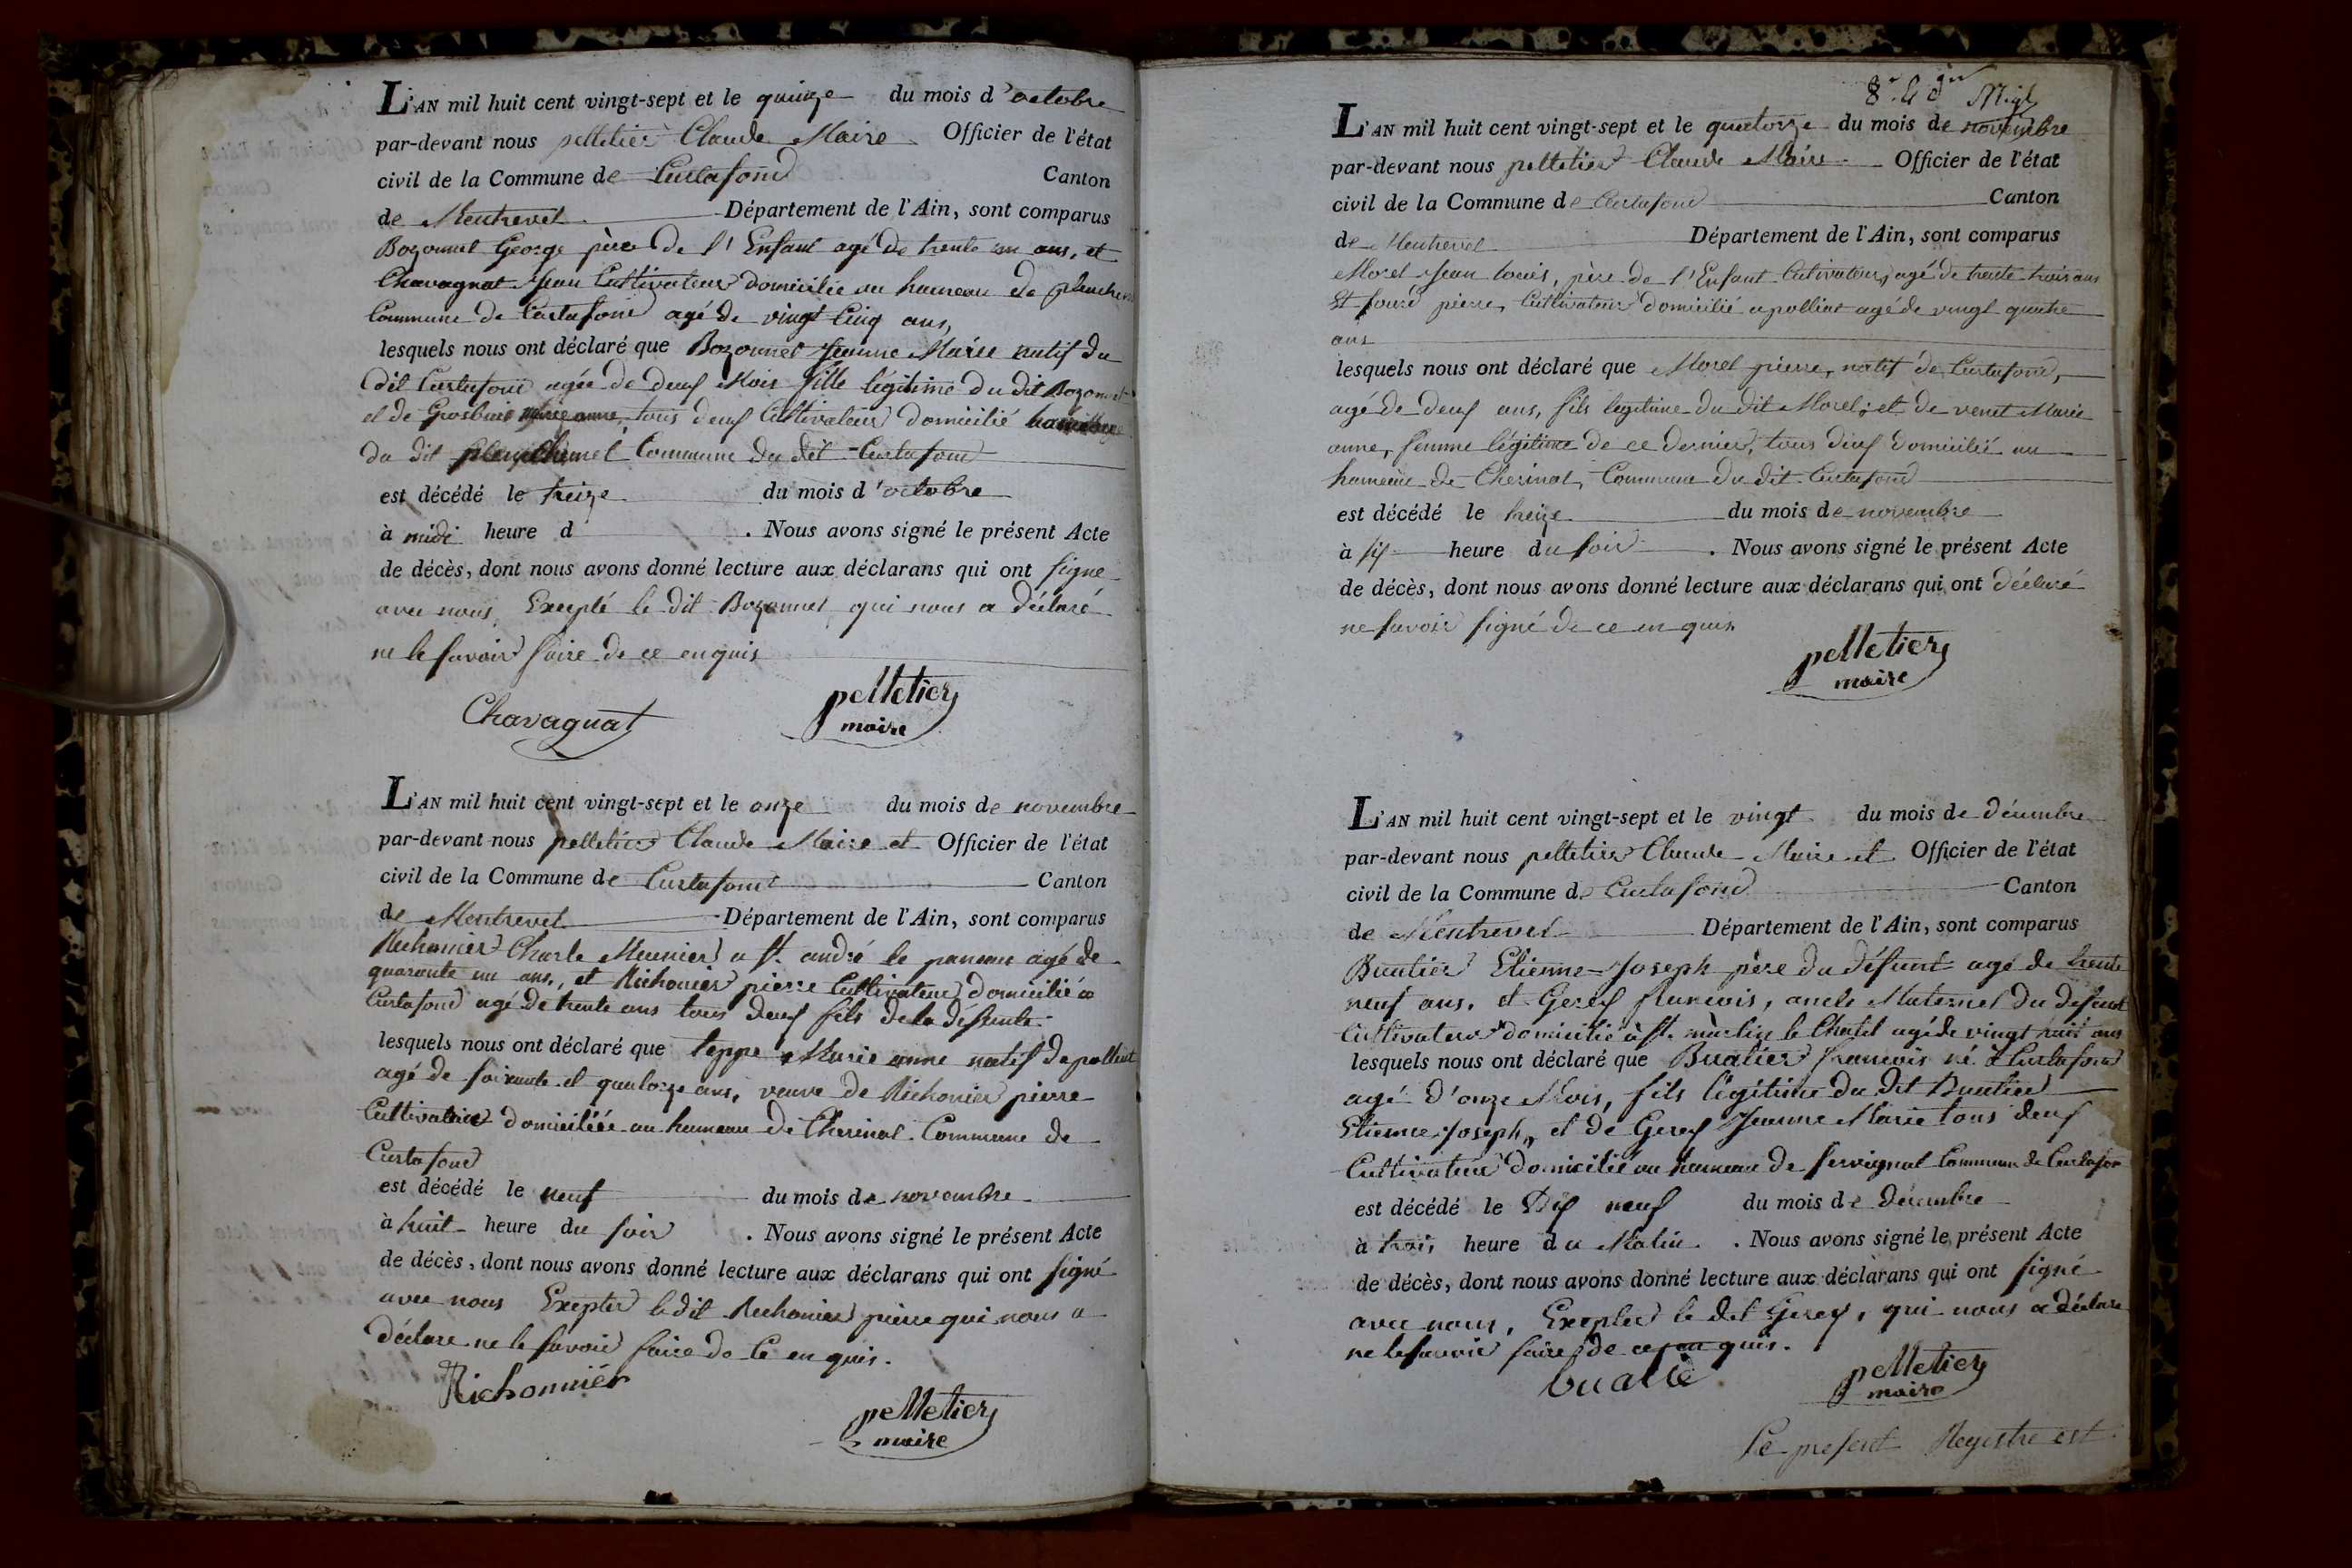 L'AN mil huit cent vingt-sept et le quinze du mois d'octobre
par-devant nous pelletier Claude Maire Officier de l'état
civil de la Commune de Curtafond Canton
de Montrevel Département de l'Ain, sont comparus
Bozonnet George père de l'Enfant agé de trente un ans, et
Chavagnat Jean Cultivateur domicilié au hameau de
Commune de Curtafond agé de vingt Cinq ans,
lesquels nous ont déclaré que Bozonnet Jeanne Marie natif du
dit Curtafond agée de deux Mois fille légitime du dit Bozonnet
et de Marie anne, tous deux Cultivateur domicilié
du dit Commune du dit Curtafond
est décédé le treize du mois d'octobre
à midi heure d . Nous avons signé le présent Acte
de décès, dont nous avons donné lecture aux déclarans qui ont signé
avec nous, Excepté le dit Bozonnet qui nous a déclaré
ne le savoir faire de ce enquis
Chavagnat pelletier
maire
L'AN mil huit cent vingt-sept et le onze du mois de novembre
par-devant nous pelletier Claude Maire et Officier de l'état
civil de la Commune de Curtafond Canton
de Montrevel Département de l'Ain, sont comparus
Richonier Charle Meunier a St. andré le panoux agé de
quarante un ans, et Richonier pierre Cultivateur domicilié a
Curtafond agé de trente ans tous deux fils de la défunte
lesquels nous ont déclaré que teppe Marie anne natif de polliat
agé de soixante et quatorze ans, veuve de Richonier pierre
Cultivatrice domiciliée au hameau de Cherinal Commune de
Curtafond
est décédé le neuf du mois de novembre
à huit heure du soir . Nous avons signé le présent Acte
de décès, dont nous avons donné lecture aux déclarans qui ont signé
avec nous Excepter le dit Richonier pierre qui nous a
déclare ne le savoir faire de Ce en quis.
Richonnier
pelletier
maire
8.
L'AN mil huit cent vingt-sept et le quatorze du mois de novembre
par-devant nous pelletier Claude Maire Officier de l'état
civil de la Commune de Curtafond Canton
de Montrevel Département de l'Ain, sont comparus
Morel Jean louis, père de l'Enfant Cultivateur, agé de trente trois ans
Et pierre, Cultivateur domicilié a polliat agé de vingt quatre
ans
lesquels nous ont déclaré que Morel pierre, natif de Curtafond,
agé de deux ans, fils legitime du dit Morel; et de venet Marie
anne, femme légitime de ce dernier, tous deux domicilié au
hameau de Cherinal, Commune du dit Curtafond
est décédé le treize du mois de novembre
à six heure du soir . Nous avons signé le présent Acte
de décès, dont nous avons donné lecture aux déclarans qui ont déclaré
ne savoir signé de ce en quis
pelletier
maire
L'AN mil huit cent vingt-sept et le vingt du mois de décembre
par-devant nous pelletier Claude Maire et Officier de l'état
civil de la Commune de Curtafond Canton
de Montrevel Département de l'Ain, sont comparus
Buatier Etienne-Joseph père du défunt agé de trente
neuf ans, et Gerex francois, oncle Maternel du defunt
Cultivateur domicilié à St. martin le Chatel agé de vingt huit ans
lesquels nous ont déclaré que Buatier francois né à Curtafond
agé d'onze Mois, fils légitime du dit Buatier
Etienne-Joseph, et de Gerex Jeanne Marie tous deux
Cultivateur domicilié au hameau de servignat Commune de Curtafon
est décédé le Dix neuf du mois de Décembre
à trois heure du Matin . Nous avons signé le présent Acte
de décès, dont nous avons donné lecture aux déclarans qui ont signé
avec nous, Excepter le dit Gerex, qui nous a déclare
ne le savoir faire de ce en quis.
buatié pelletier
maire
Le present Registre est